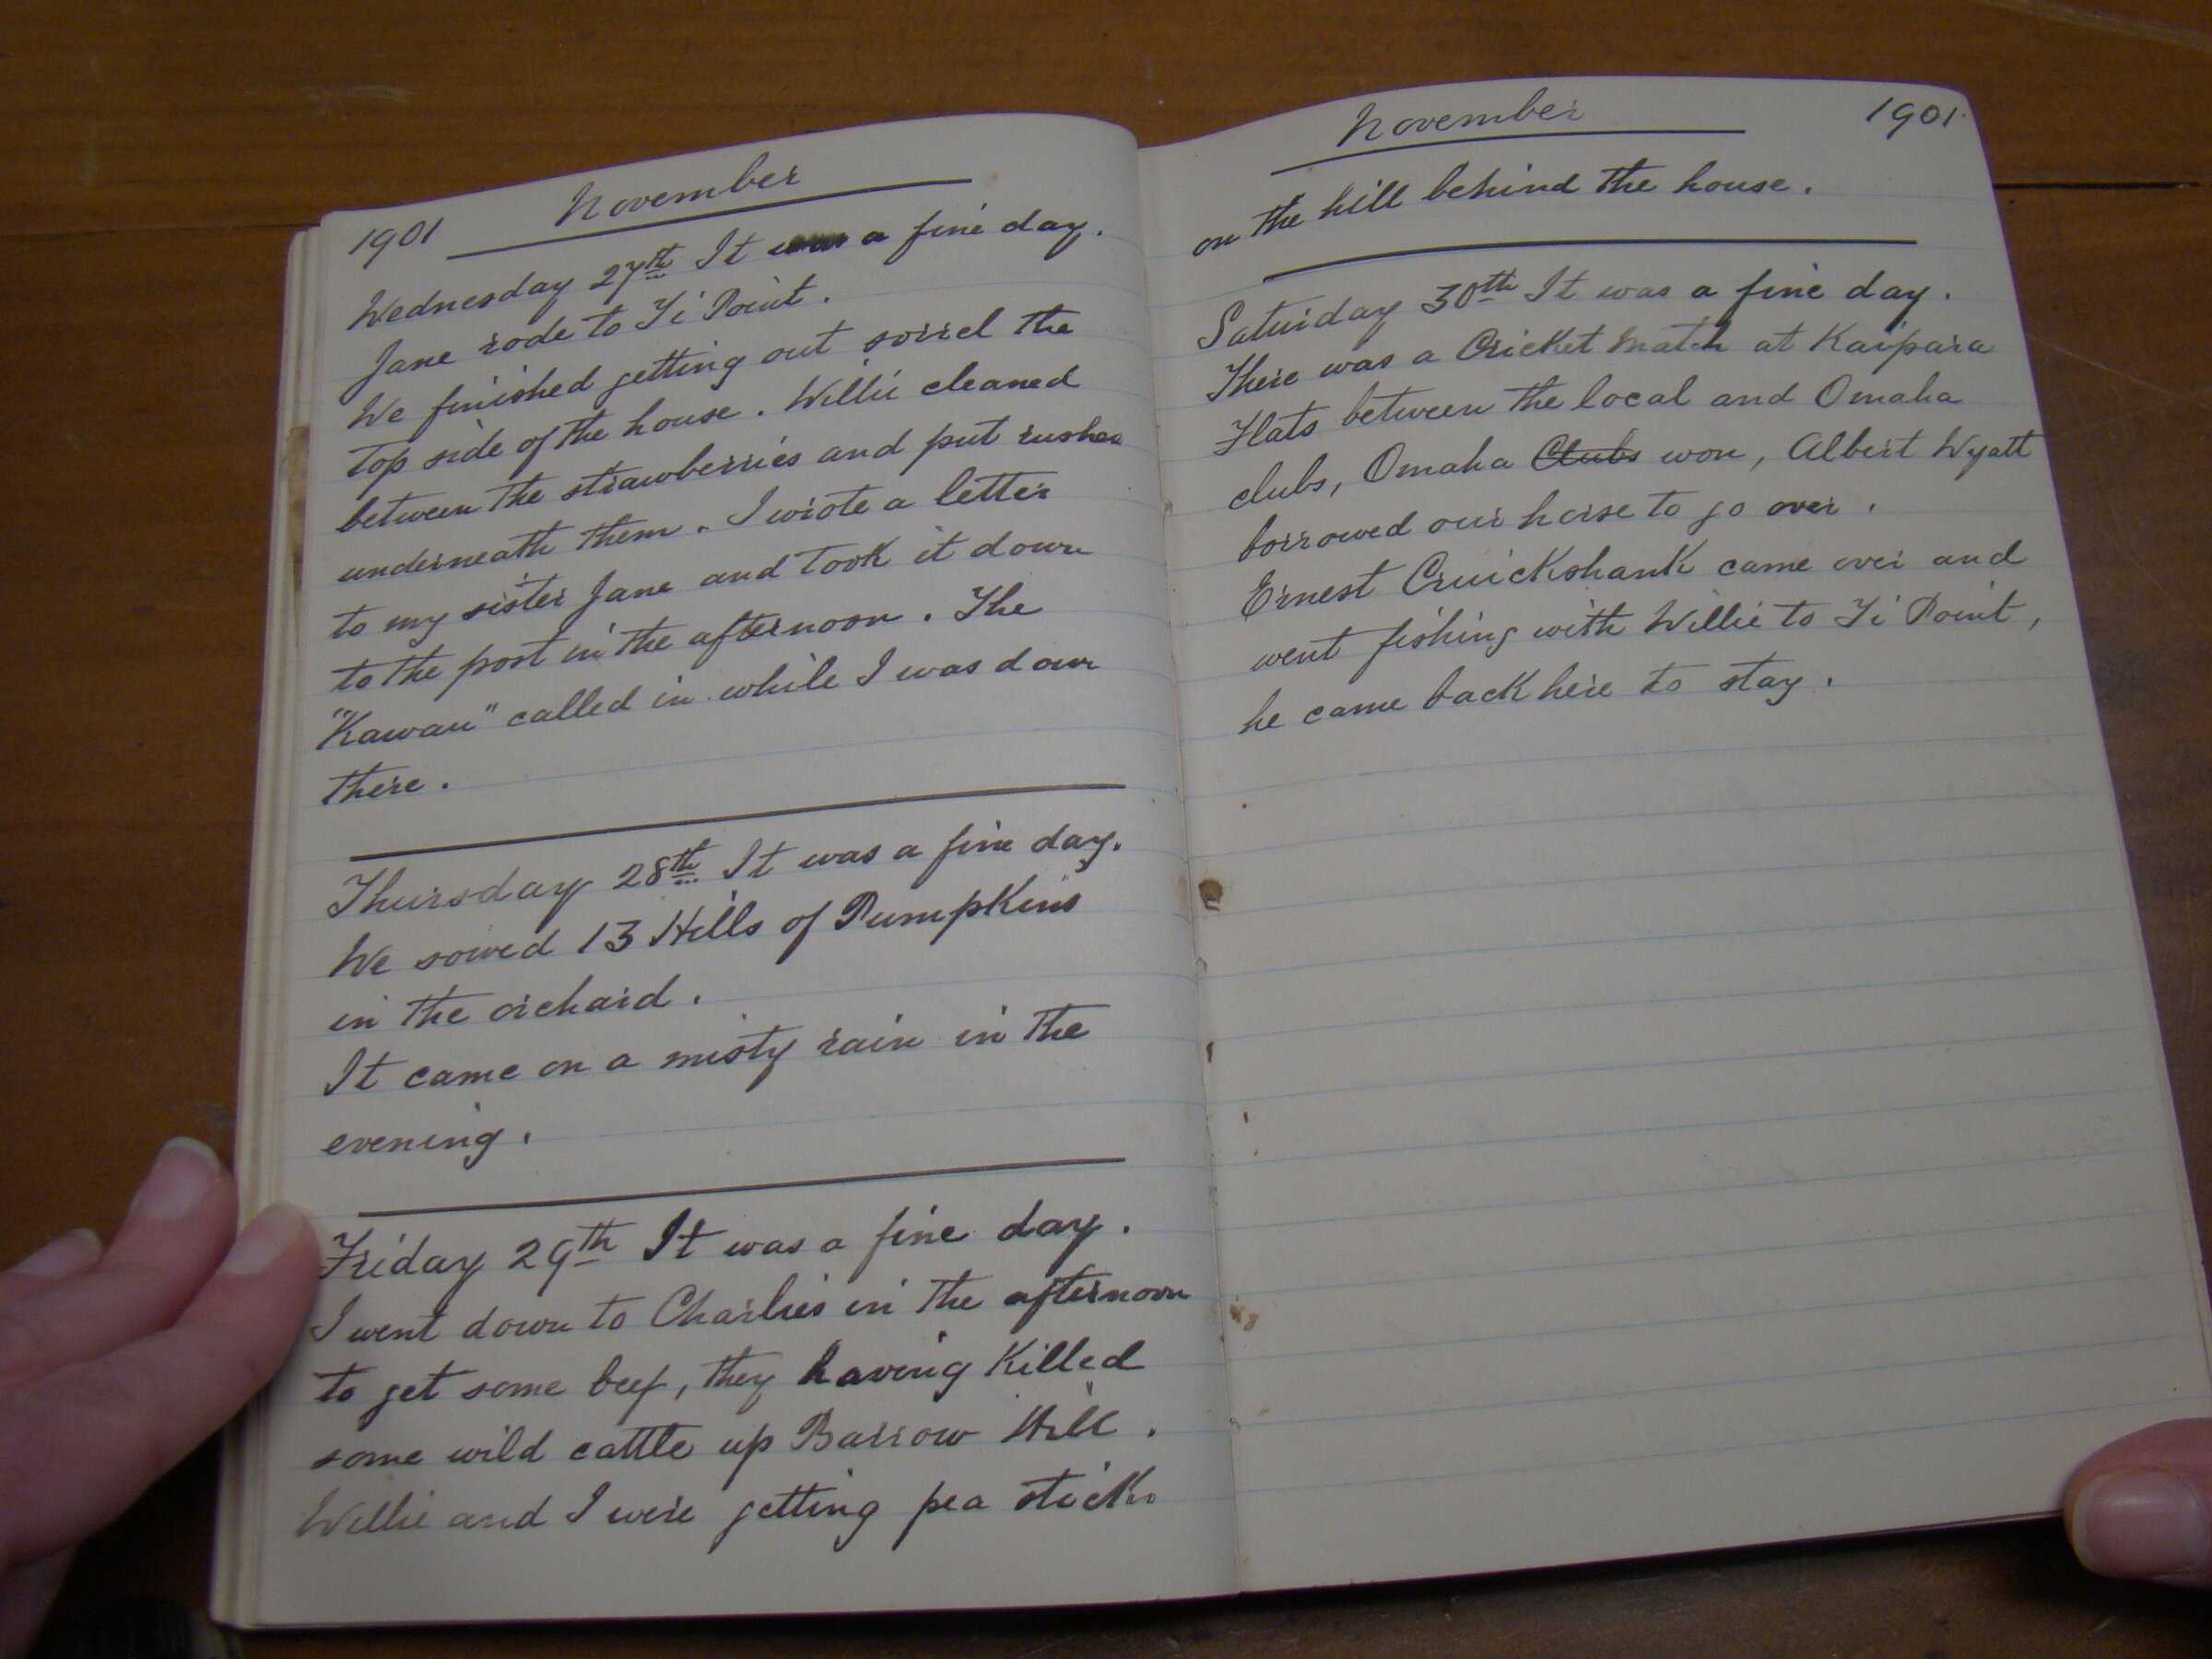 1901 November
Wednesday 27th It was a fine day.
Jane rode to Ti Point.
We finished getting out sorrel the
top side of the house. Willie cleaned
between the strawberries and put rushes
underneath them. I wrote a letter
to my sister Jane and took it down
to the post in the afternoon. The
"Kawau" called in while I was down
there.
Thursday 28th It was a fine day.
We sowed 13 Hills of Pumpkins
in the orchard.
It came on a misty rain in the
evening.
Friday 29th It was a fine day.
I went down to Charlies in the afternoon
to get some beef, they having killed
some wild cattle up Barrow Hill.
Willie and I were getting pea sticks
November 1901.
on the hill behind the house.
Saturday 30th It was a fine day.
There was a Cricket match at Kaipara
Flats between the local and Omaha
clubs, Omaha Clubs won, Albert Wyatt
borrowed our horse to go over.
Ernest Cruickshank came over and
went fishing with Willie to Ti Point,
he came back here to stay.